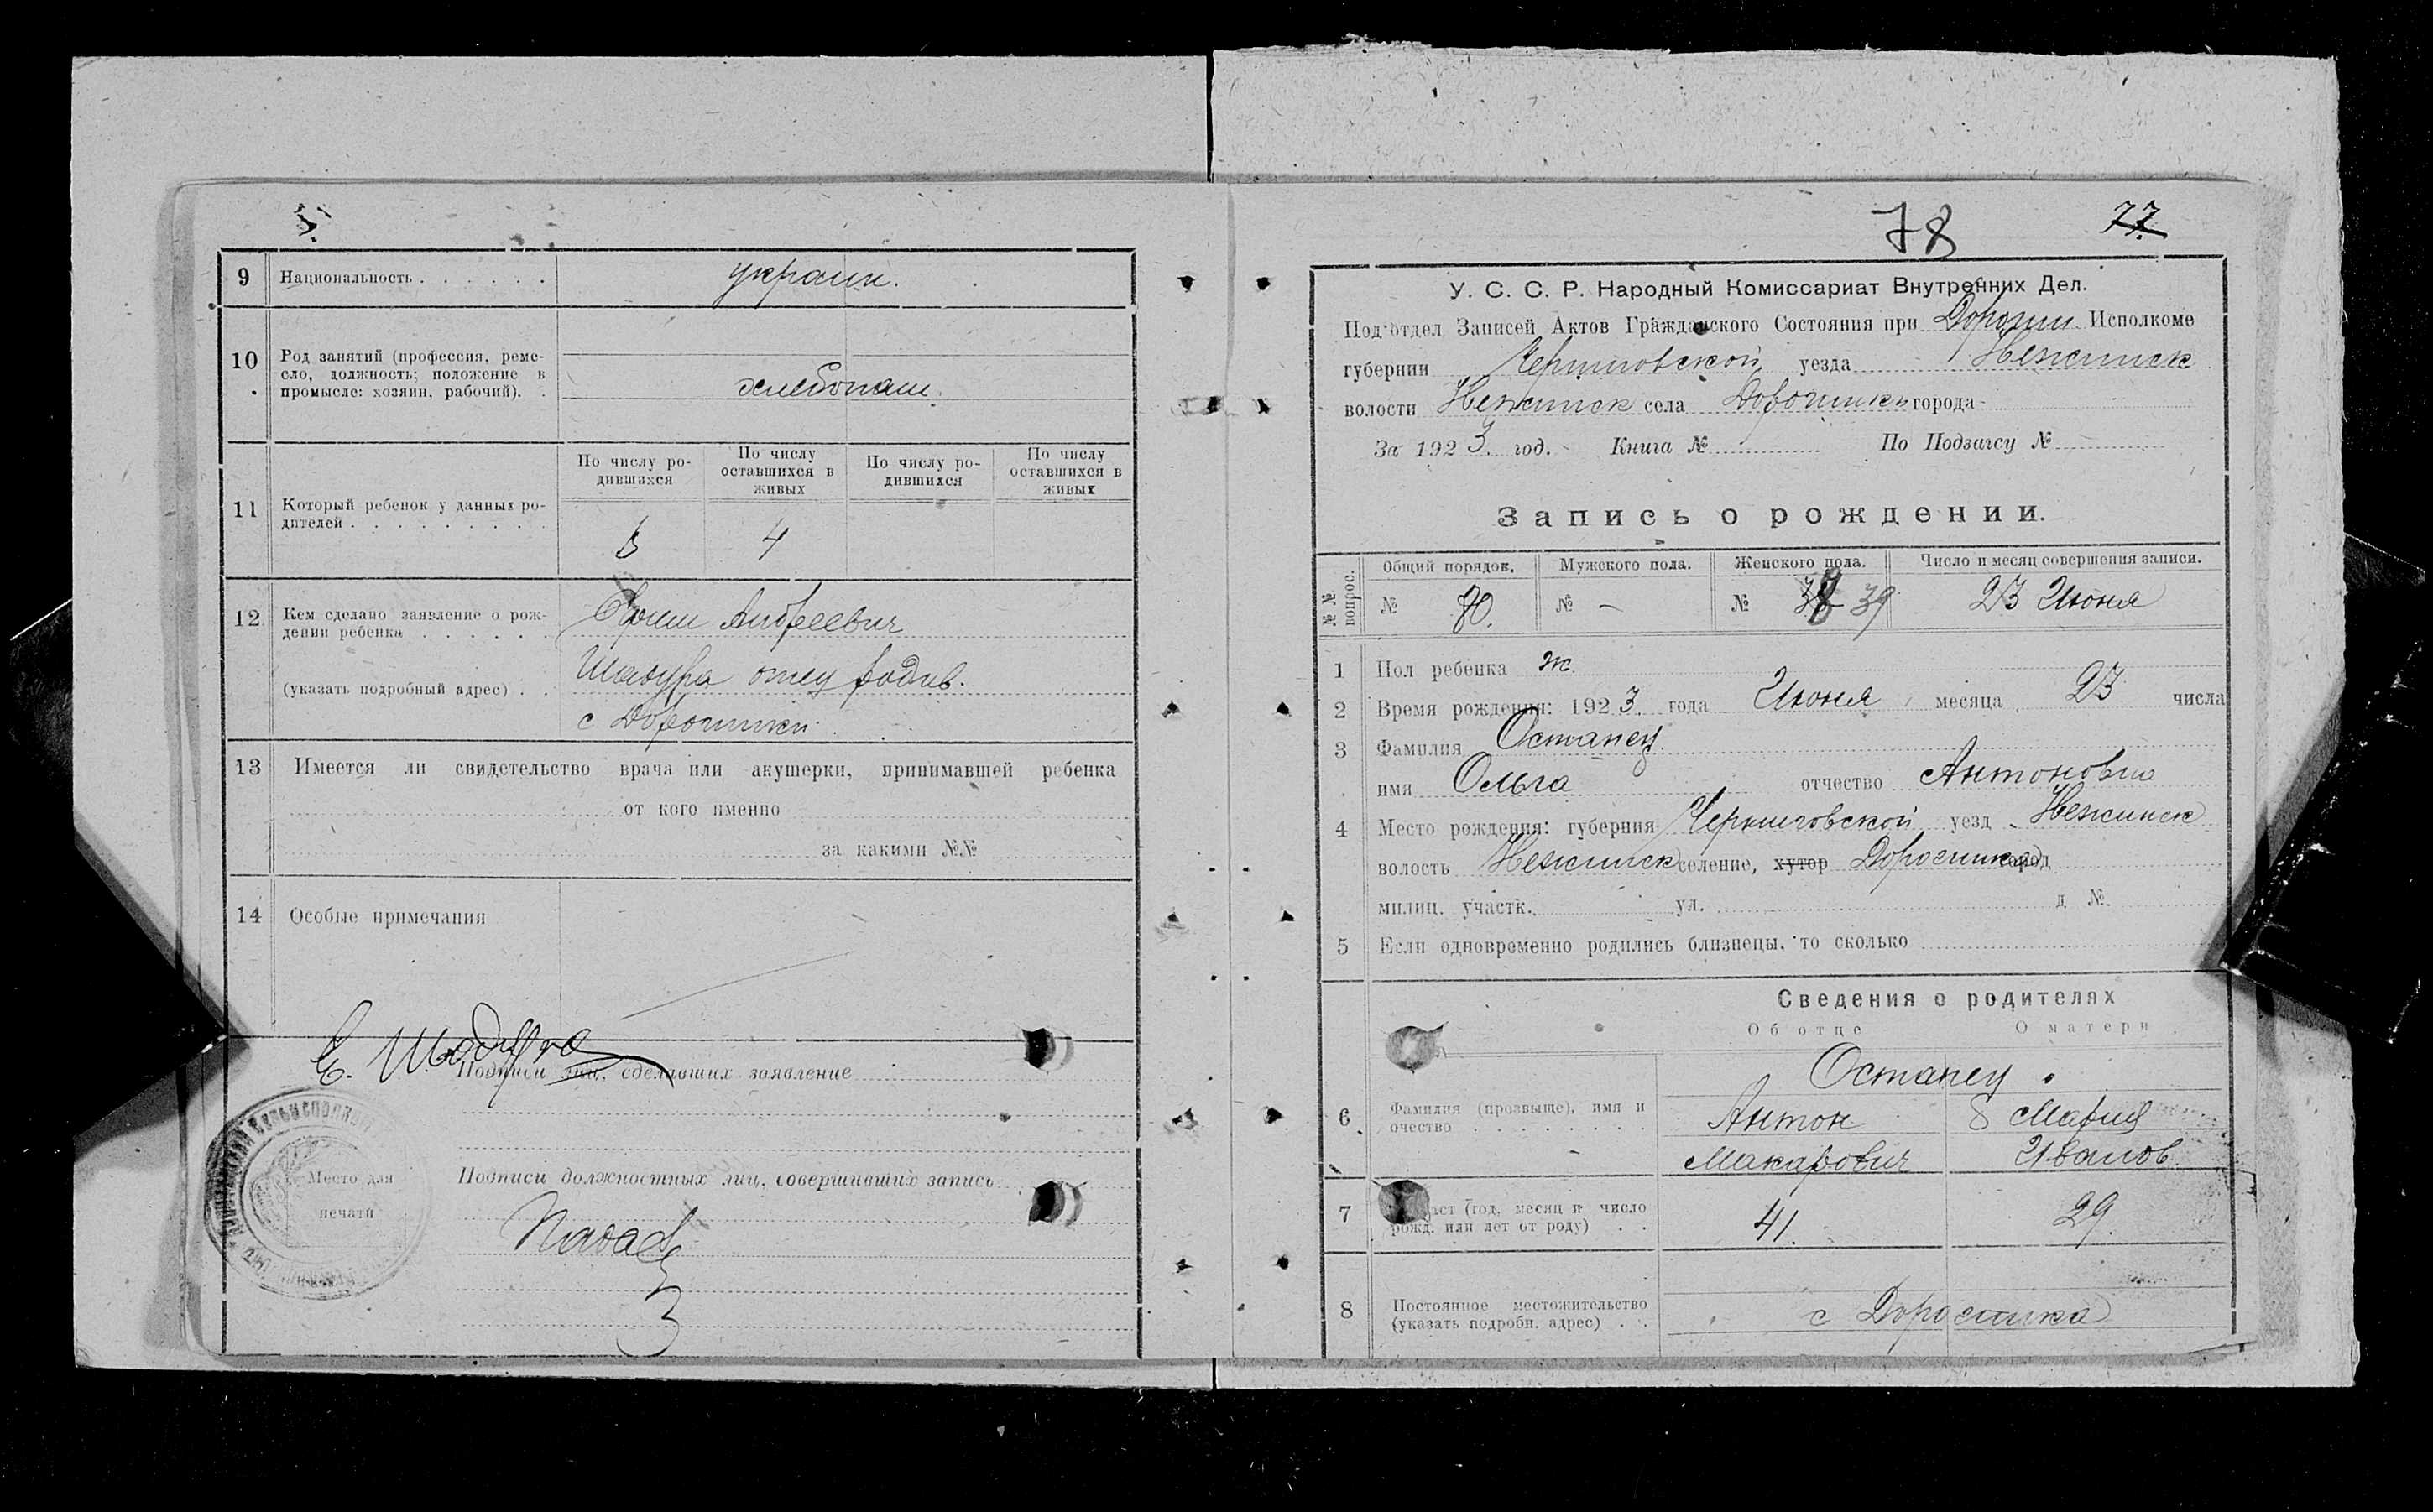 9 Национальность . . . . . . украин.
10 Род занятий (профессия, реме-
сло, должность; положение в
промысле: хозяин, рабочий). . хлебопаш.
По числу ро-
дившихся
По числу
оставшихся в
живых
По числу ро-
дившихся
По числу
оставшихся в
живых
11 Который ребенок у данных ро-
дителей . . . . . . . . .
5 4
12 Кем сделано заявление о рож-
дении ребенка . . . . . . Андреевич
(указать подробный адрес) . . Шадура отец
с Дорогинки
13 Имеется ли свидетельство врача или акушерки, принимавшей ребенка
от кого именно
за какими №№
14 Особые примечания
Е. Шадура
Подписи лиц, сделавших заявление
Место для
печати
Подписи должностных лиц, совершивших запись
78 77.
У. С. С. Р. Народный Комиссариат Внутренних Дел.
Под'отдел Записей Актов Гражданского Состояния при Дорогин Исполкоме
губернии Черниговской уезда Нежинск
волости Нежинск села Дорогинки города
За 1923. год. Книга № По Подзагсу №
Запись о рождении.
№ № вопрос.
Общий порядок. Мужского пола. Женского пола. Число и месяц совершения записи.
№ 80. № – № 38 39 23 Июня
1 Пол ребенка ж
2 Время рождения: 1923. года Июня месяца 23 числа
3 Фамилия Остапец
имя Ольга отчество Антоновна
4 Место рождения: губерния Черниговской уезд Нежинск
волость Нежинск селение, хутор Дорогинка город
милиц. участк. ул. д №
5 Если одновременно родились близнецы, то сколько
Сведения о родителях
Об отце О матери
Остапец
6 Фамилия (прозвыще), имя и
очество . . . . . . . .
Антон Мария
Макарович Иванов.
7 Возраст (год, месяц и число
рожд. или лет от роду) . . 41. 29.
8 Постоянное местожительство
(указать подробн. адрес) . . с Дорогинка